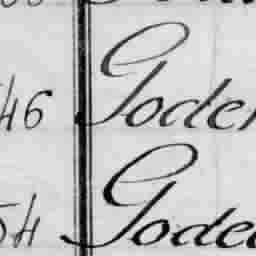 46 Goder
54 Godea